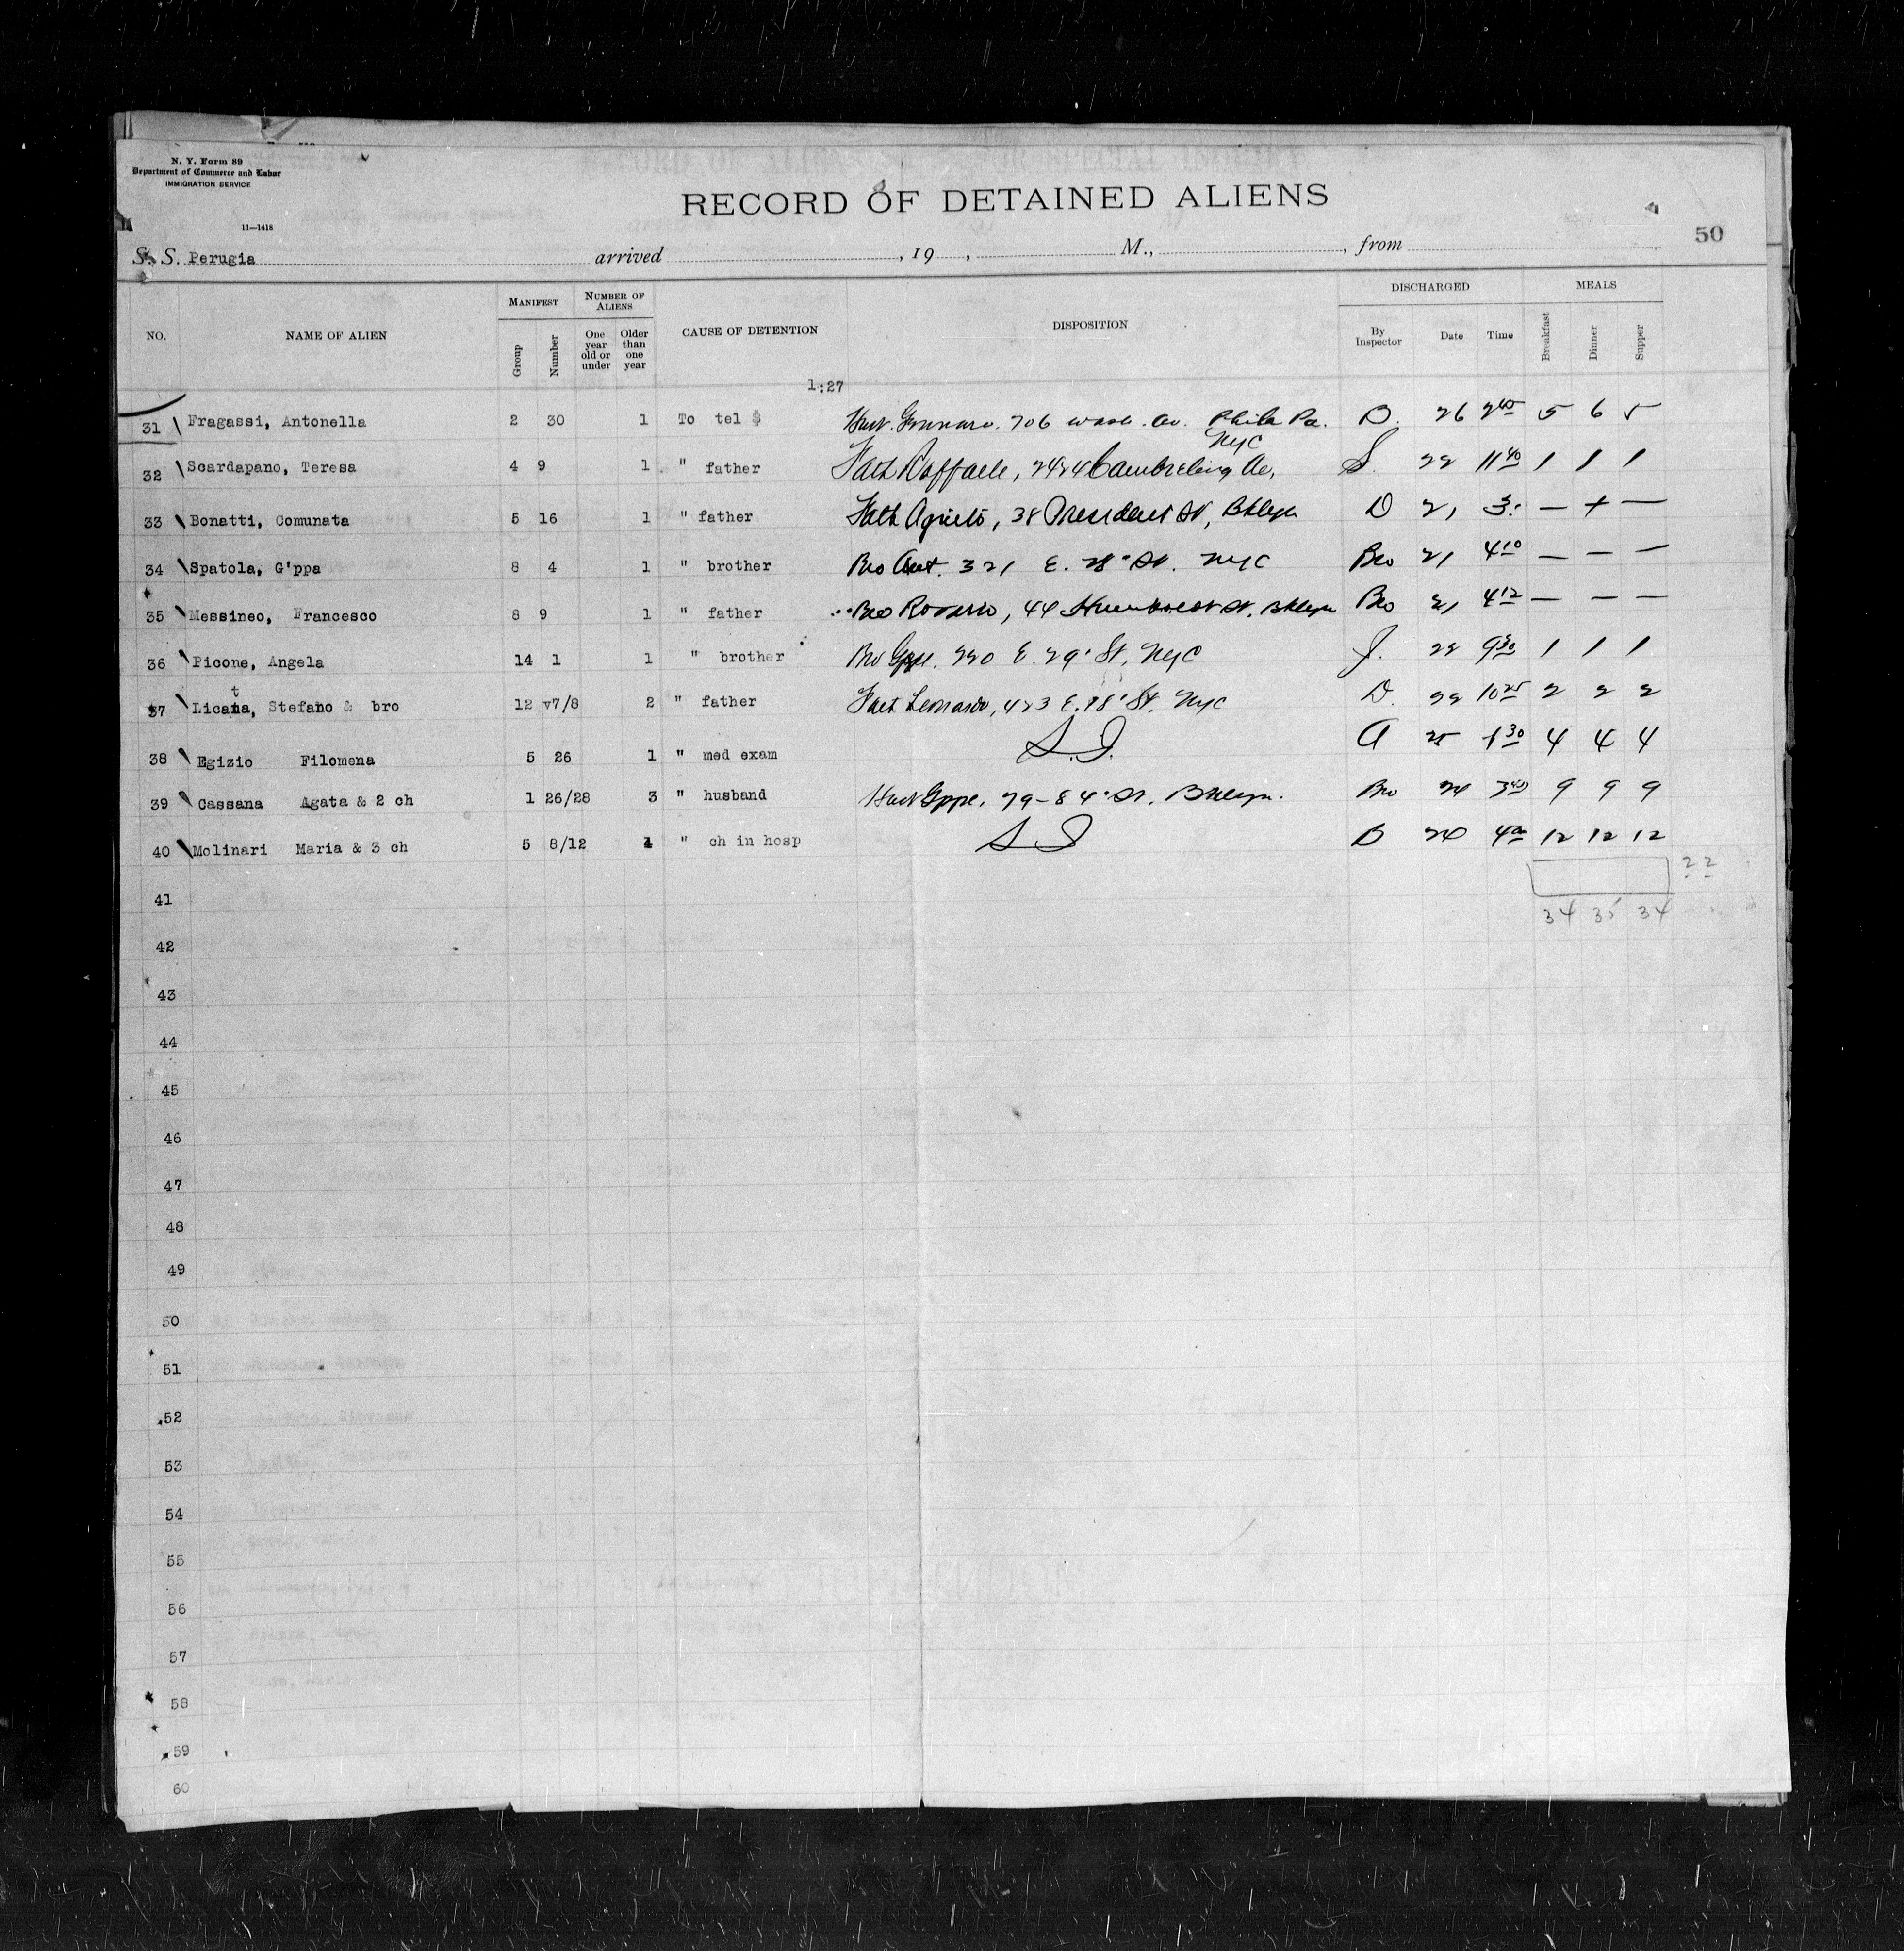 N. Y. Form 89
Department of Commerce and Labor
IMMIGRATION SERVICE
11—1418
RECORD OF DETAINED ALIENS
50
S. S. Perugia arrived , 19 , M., , from
NO. NAME OF ALIEN MANIFEST Group Number NUMBER OF ALIENS One year old or under Older than one year CAUSE OF DETENTION DISPOSITION DISCHARGED By Inspector Date Time MEALS Breakfast Dinner Supper
1:27
31 Fragassi, Antonella 2 30 1 To tel $ Gennaro. 706 Wash. Av. Phila Pa. D. 26 2 40 5 6 5
32 Scardapano, Teresa 4 9 1 " father Fath Raffaele, 2424 Cambreling Av, NYC S. 22 11 40 1 1 1
33 Bonatti, Comunata 5 16 1 " father Fath 38 President St, Bklyn D 21 3. — + —
34 Spatola, G'ppa 8 4 1 " brother Bro Ant. 321 E. 28" St. NYC Bro 21 4 10 — — —
35 Messineo, Francesco 8 9 1 " father Bro Rosario, 44 Humboldt St. Bklyn Bro 21 4 12 — — —
36 Picone, Angela 14 1 1 " brother Bro Gppe. 220 E. 29' St, NYC J. 22 9 30 1 1 1
37 Licata, Stefano & bro 12 v7/8 2 " father Fath Leonardo, 423 E. St. NYC D. 22 10 25 2 2 2
38 Egizio Filomena 5 26 1 " med exam S.I. A 25 30 4 4 4
39 Cassana Agata & 2 ch 1 26/28 3 " husband Gppe, 79-84" St, Bklyn. Bro 24 3 40 9 9 9
40 Molinari Maria & 3 ch 5 8/12 4 " ch in hosp S I D 24 4 12 12 12
22
41
34 35 34
42
43
44
45
46
47
48
49
50
51
52
53
54
55
56
57
58
59
60